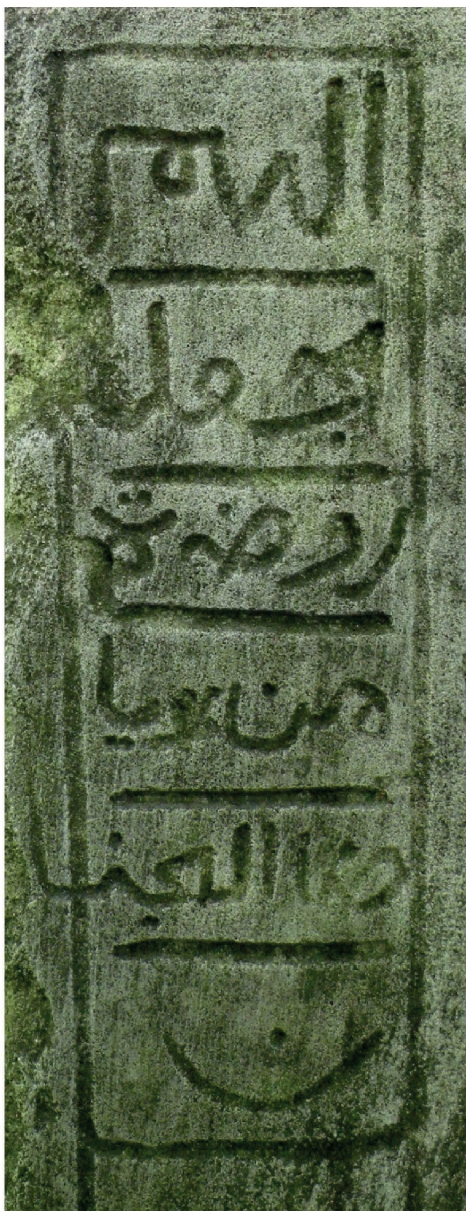 اللهم
اجعله
روضة
من ريا
ض الجنا
ن